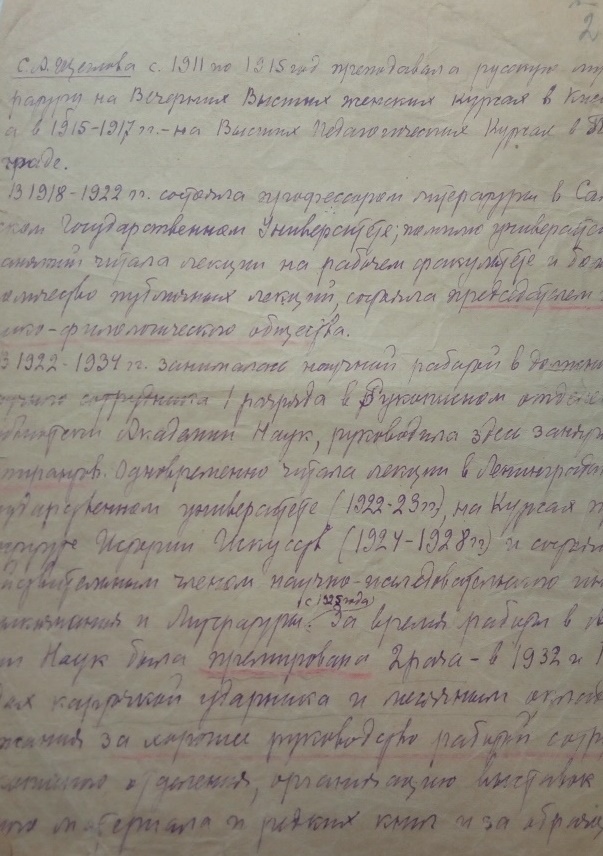 2
С.А. Щеглова с 1911 по 1915 год преподавала русскую ли
ратуру на Вечерних Высших женских курсах в Кие
а в 1915-1917 гг. - на Высших Педагогических Курсах в Пе
граде.
В 1918-1922 гг. состояла профессором литературы в Са
ском Государственном Университете; помимо университе
анятий читала лекции на рабочем факультете и бол
оличество публичных лекций, состояла председателем
ко-филологического общества.
В 1922-1934 гг. занималась научной работой в должно
учного сотрудника I разряда в Рукописном отделе
блиотеки Академии Наук, руководила здесь заняти
пирантов. Одновременно читала лекции в Ленинградс
ударственном университете (1922-23 гг), на Курсах п
ституте Истории Искусств (1924-1928 гг) и состоя
йствительным членом научно-исследовательского ин
(с 1925 года)
ыкознания и Литературы. За время работы в
ии Наук была премирована 2 раза - в 1932 и 1
дах карточкой ударника и месячным оклад
жания за хорошее руководство работой сотру
описного отделения, организацию выставок
ного материала и редких книг и за образц